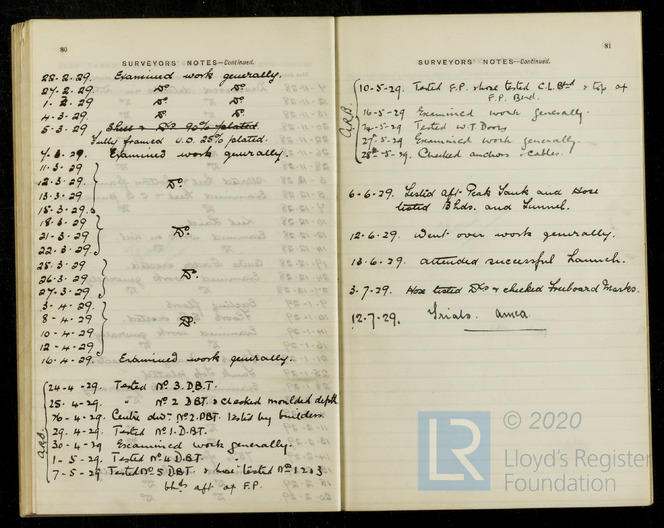 80
SURVEYORS' NOTES—Continued.
22.2.29. Examined work generally.
27.2.29. Do Do
1.2.29. Do Do
4.3.29. Do Do
5.3.29. Shell & Dks 90% plated.
Fully framed U.D. 25% plated.
7.3.29. Examined work generally.
11.3.29
12.3.29. Do.
13.3.29
15.3.29.
18.3.29
21.3.29. Do.
22.3.29.
25.3.29
26.3.29 Do.
27.3.29
3-4-29.
8-4-29 Do.
10-4-29
12-4-29
16.4.29. Examined work generally.
24-4-29. Tested No 3. D.B.T.
25.4-29. " No 2 DBT. & checked moulded depth
26-4-29. Centre divn. No 2. DBT. Tested by builders
29.4-29. Tested No 1. D.B.T.
30-4-29 Examined work generally.
1-5-29. Tested No 4 D.B.T.
7-5-29 Tested No 5 D.B.T. & hose tested Nos 1 2 & 3
bhds aft of F.P.
81
SURVEYORS' NOTES—Continued.
10-5-29. Tested F.P. & hose tested C.L. Bhd & top of
F.P. Bhd.
16-5-29 Examined work generally.
24-5-29 Tested W.T. Doors
27-5-29 Examined work generally.
28th-5-29. Checked anchors & cables.
6-6-29. Tested aft Peak Tank and Hose
tested Bhds. and Tunnel.
12.6.29. Went over work generally.
13.6.29. Attended successful Launch.
3.7.29. Hose tested Dks & checked Freeboard Marks.
12.7.29. Trials.
LR
© 2020
Lloyd's Register
Foundation